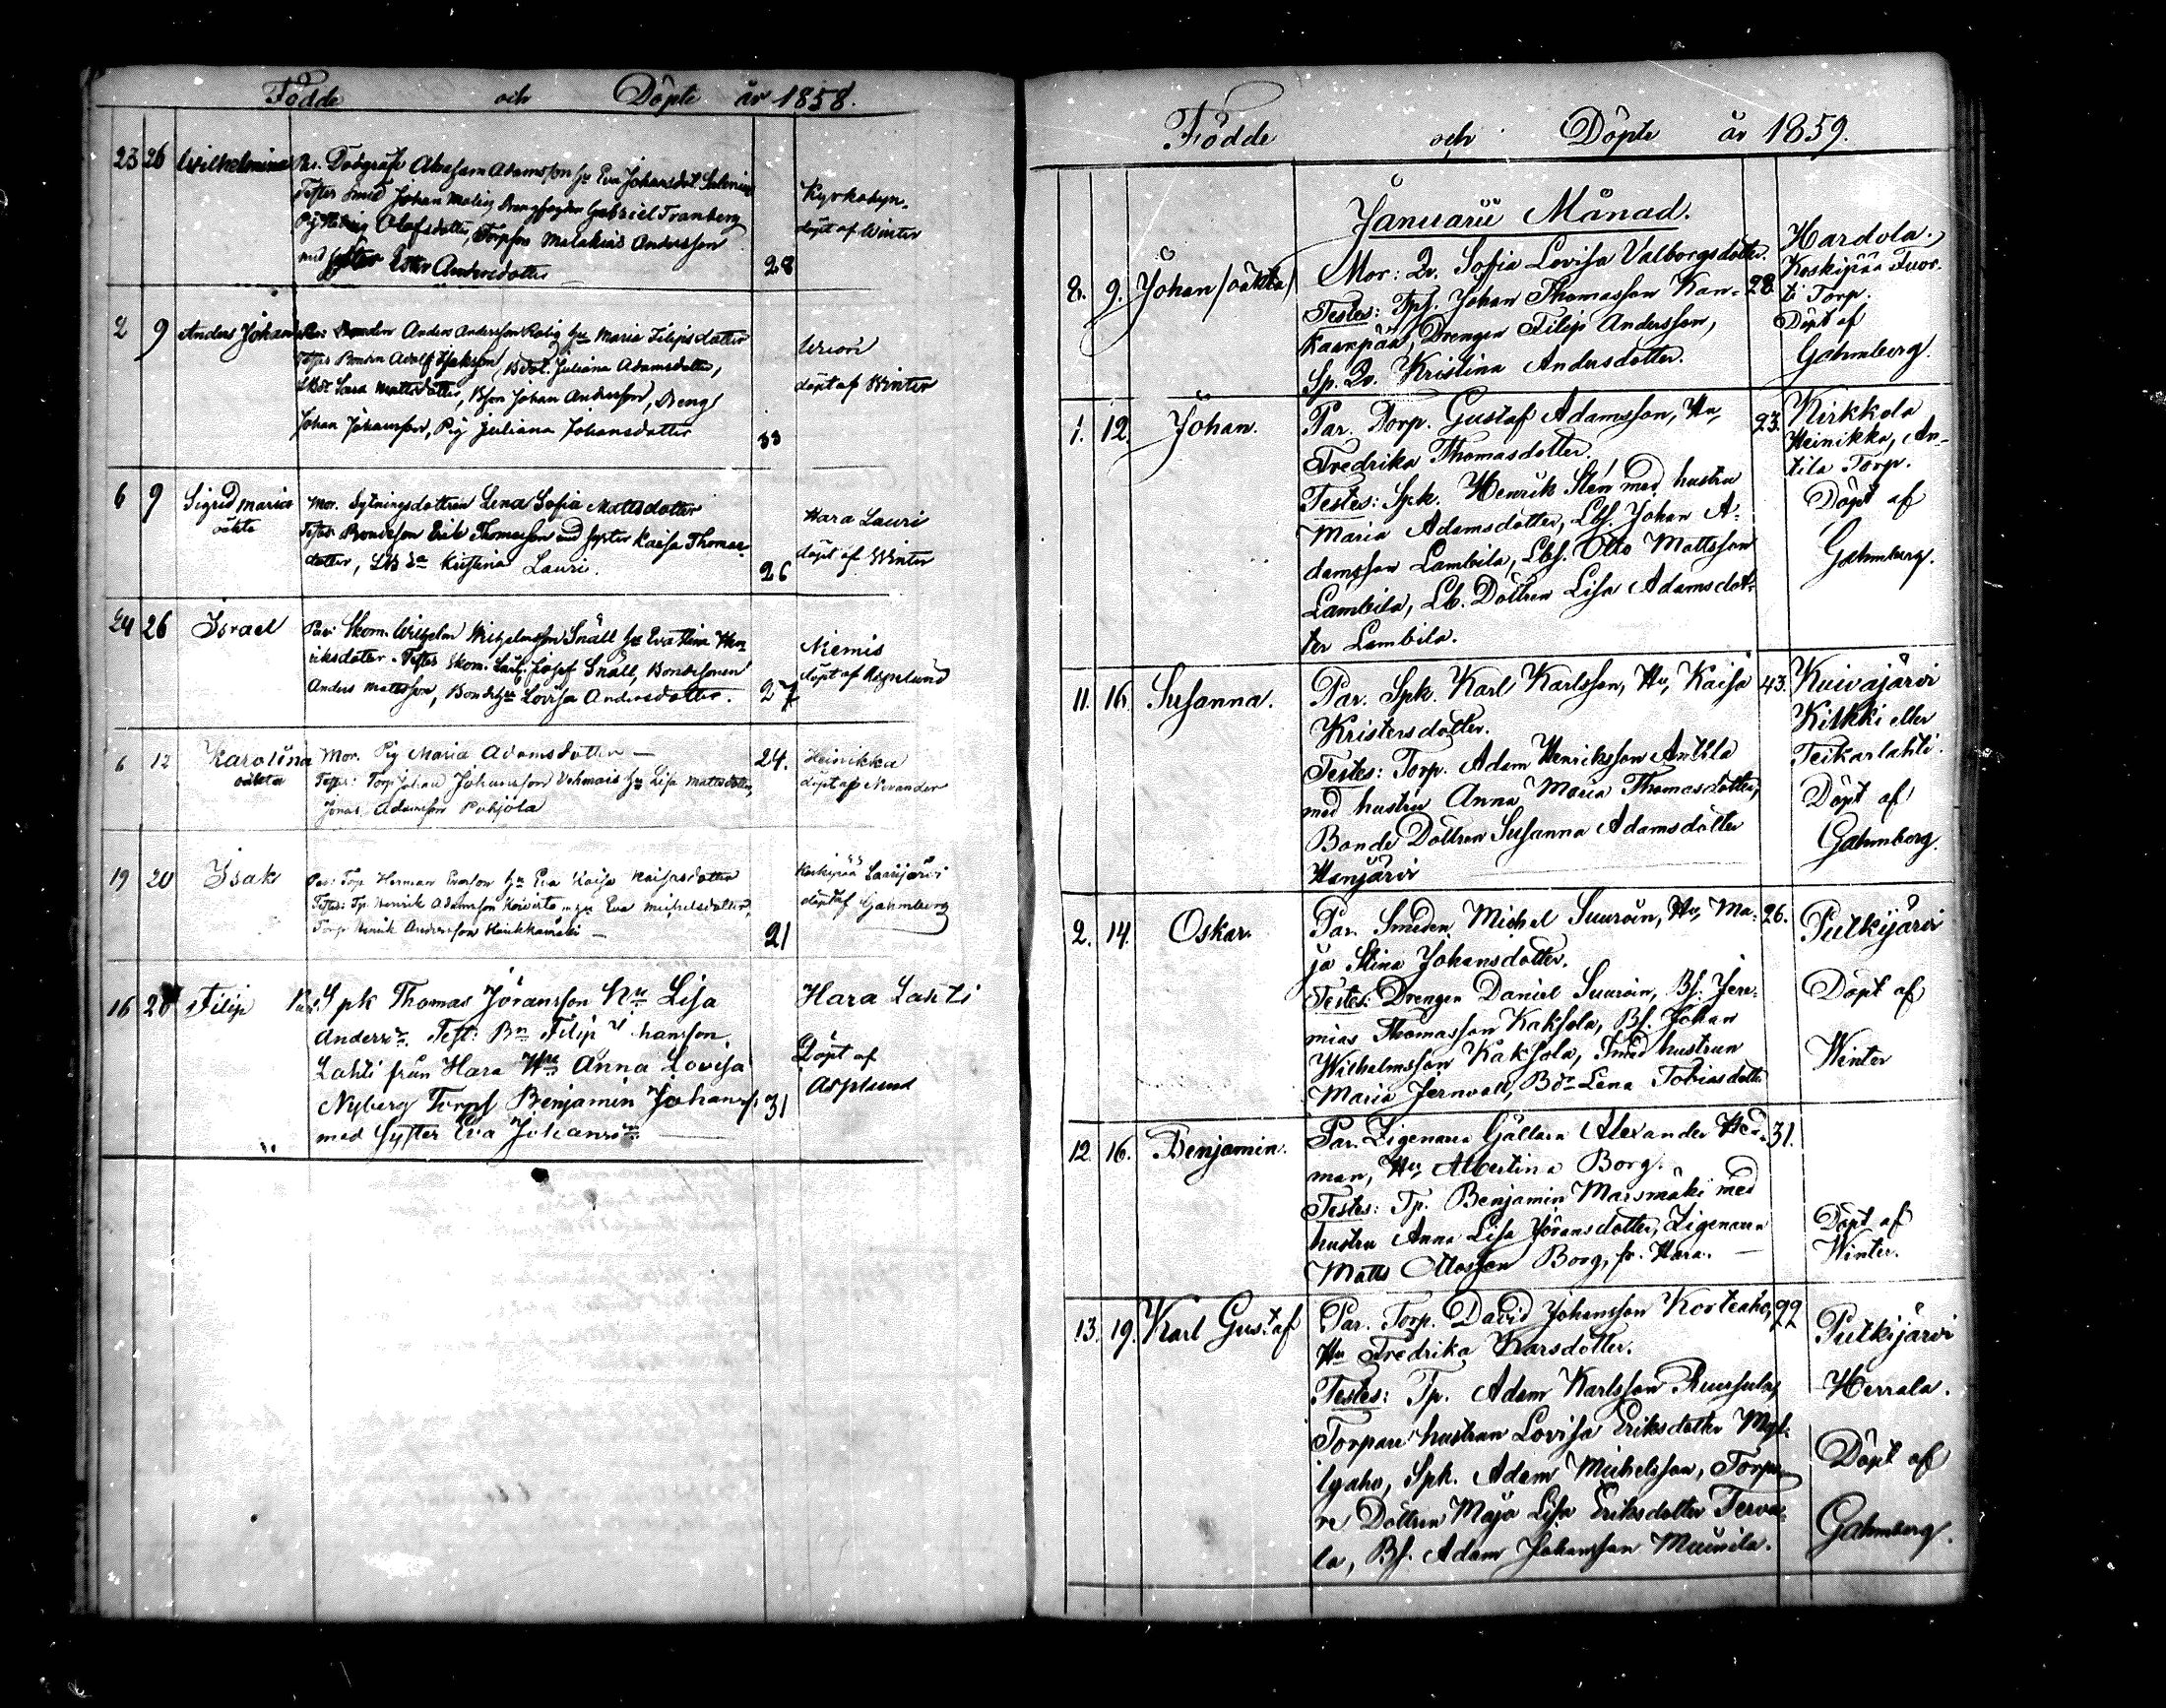 Födde och Döpte år 1858.
23 26 Wilhelmina Abraham Adamsson Hu Eva Johansdot
Testes Smed Johan Malin, Gabriel Tranberg
Olofsdotter, Torpson Malakias Andersson
med Ester Andersdotter 28
Kyrkobyn.
döpt af Winter
2 9 Anders Johan Par: Bonden Anders Andersson Hu Maria Filipsdotter
Testes Bonden Adolf Bdot. Juliana Adamsdotter,
Sara Mattsdotter, Bson Johan Andersson, Dreng
Johan Johansson, Pig Juliana Johansdotter 33
döpt af Winter
6 9 Sigrid Maria Mor. Sytningsdottren Lena Sofia Mattsdotter
oäkta Testes Bondeson Erik Thomasson med syster Kaisa Thomas-
dotter, Kristina Lauri. 26
Hara Lauri
döpt af Winter
24 26 Israel Par: Skom. Wilhelm Wilhelmsson Snäll Hu Eva Stina Hen
riksdotter. Testes Skom. Josef Snäll, Bondesonen
Anders Mattsson, Bondehu Lovisa Andersdotter. 27
Niemis
döpt af Asplund
6 12 Karolina Mor. Pig Maria Adamsdotter — 24.
oäkta Testes: Torp Johan Johansson Hu Lisa Mattsdotter,
Jonas Adamsson Pohjola
Heinikka
döpt af Nevander
19 20 Isak Par: Torp Herman Hu Eva Kaisa
Testes: Tp. Henrik Adamsson Koivisto Hu Eva Michelsdotter,
Torp Henrik Andersson — 21
Koskipää Saarijärvi
döpt af Gahmberg
16 20 Filip Par: Spk Thomas Jöransson Hu Lisa
Andersdr. Test: Bn Filip Johansson
Lahti från Hara Hu Anna Lovisa
Nyberg Torps Benjamin Johanss. 31
med syster Eva Johansdr.
Hara Lahti
Döpt af
Asplund
Födde och Döpte år 1859.
Januarii Månad.
8. 9. Johan /oäkta/ Mor: Qv. Sofia Lovisa Valborgsdotter. 28.
Testes: Tps. Johan Thomasson Kan-
kaanpää, Drengen Filip Andersson,
Sp. Qv. Kristina Andersdotter.
Hardola.
Koskipää Tuor-
ti Torp.
Döpt af
Gahmberg.
1. 12 Johan. Par. Torp. Gustaf Adamsson, Hu, 23.
Fredrika Thomasdotter.
Testes: Spk. Henrik Sten med hustru
Maria Adamsdotter, Lbs. Johan A-
damsson Lambila, Lbs. Otto Mattsson
Lambila, Lb. Dottren Lisa Adamsdot-
ter Lambila.
Kirkkola
Heinikka, An-
tila Torp.
Döpt af
Gahmberg.
11. 16. Susanna. Par. Spk. Karl Karlsson, Hu, Kaisa 43.
Kristersdotter.
Testes: Torp. Adam Henriksson Anttila
med hustru Anna Maria Thomasdotter,
Bonde Dottren Susanna Adamsdotter
Hanjärvi
Kuivajärvi
Kilkki eller
Teikarlahti.
Döpt af
Gahmberg.
2. 14. Oskar. Par. Smeden Michel Suuroin, Hu, Ma- 26.
ja Stina Johansdotter.
Testes: Drengen Daniel Suuroin, Bs. Jere-
mias Thomasson Kaksola, Bs. Johan
Wilhelmsson Kaksola, Smed hustrun
Maria Jernvall, Bdr Lena Tobiasdotter
Putkijärvi
Döpt af
Winter
12. 16. Benjamin. Par. Zigenaren Gällarn Alexander Hed- 31.
man, Hu, Albertina Borg.
Testes: Tp. Benjamin Marsmäki med
hustru Anna Lisa Jöransdotter, Zigenaren
Matts Ottosson Borg, fr. Hara. —
Döpt af
Winter.
13. 19. Karl Gustaf Par. Torp. David Johansson Korteaho, 22
Hu Fredrika Karsdotter.
Testes: Tp. Adam Karlsson Ruusula,
Torpare hustrun Lovisa Eriksdotter Myl-
lyaho, Spk. Adam Michelsson, Torpa-
re Dottren Maja Lisa Eriksdotter Terva-
la, Bs. Adam Johansson Muinila.
Putkijärvi
Herrala.
Döpt af
Gahmberg.